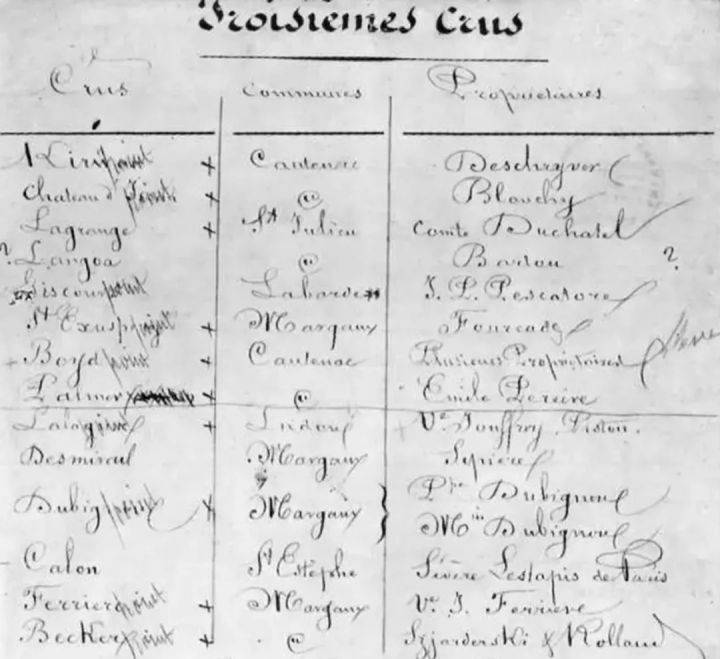 Troisièmes Crus
Crus Communes Propriétaires
Kirwpoint + Cantenac Deschryver
Chateau d' point + @ Blanchy
Lagrange + St Julien Comte Duchatel
? Langoa @ Barton ?
Giscouspoint Labarde J. P. Pescatore
St Exuppoint + Margaux Fourcade
+ Boyd point + Cantenac Plusieurs Propriétaires
Palmer + @ Emile Péreire
Lalagpoint + Ludon Ve Jouffroy Piston.
Desmirail Margaux Sipière
Dubigpoint + Margaux } Pre Dubignon
Min Dubignon
Calon St Estèphe Sévère Lestapis de Paris
Ferrierpoint + Margaux Ve J. Ferrière
Beckerpoint + @ Szjarderski & Rolland